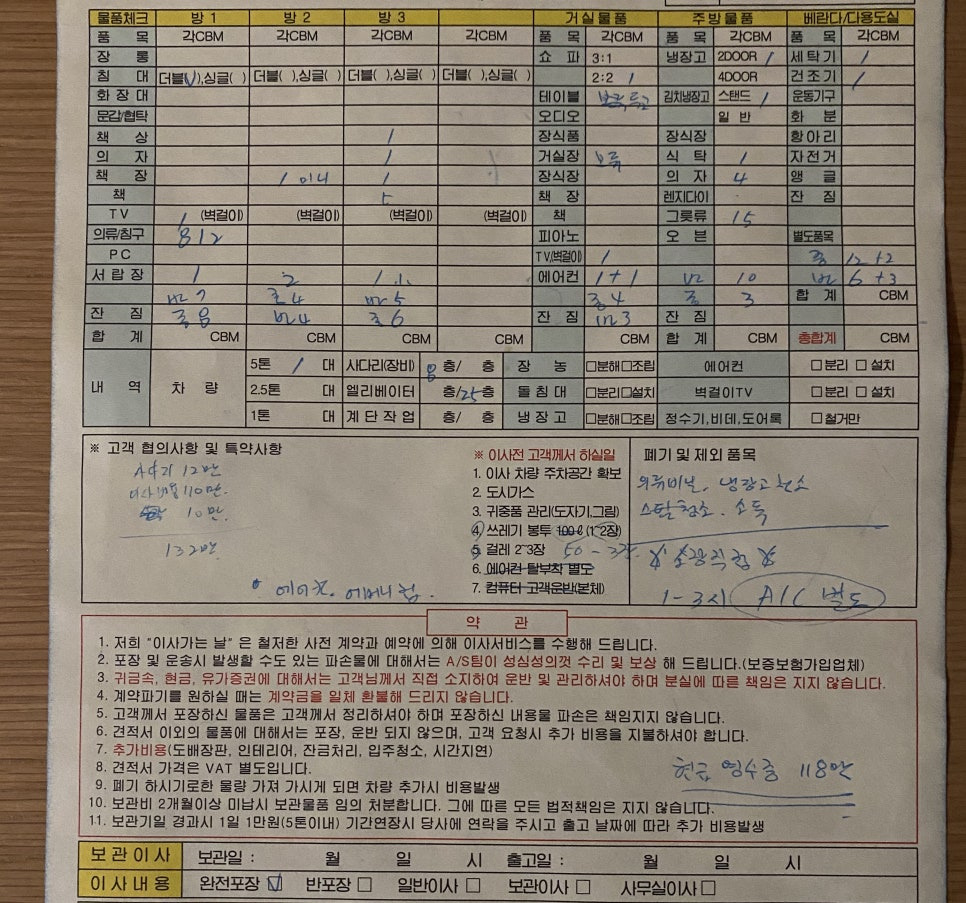 물품체크 방 1 방 2 방 3 거실물품 주방물품 베란다/다용도실
품 목 각CBM 각CBM 각CBM 각CBM 품 목 각CBM 품 목 각CBM 품 목 각CBM
장 롱 쇼 파 3:1 냉장고 2DOOR / 세탁기 /
침 대 더블(V),싱글( ) 더블( ),싱글( ) 더블( ),싱글( ) 더블( ),싱글( ) 2:2 / 4DOOR 건조기 /
화 장 대 테이블 김치냉장고 스탠드 / 운동기구
문갑/협탁 오디오 일 반 화 분
책 상 / 장식품 장식장 항아리
의 자 / 거실장 보류 식 탁 / 자전거
책 장 / 이내 / 장식장 의 자 4 앵 글
책 5 책 장 렌지다이 잔 짐
TV / (벽걸이) (벽걸이) (벽걸이) (벽걸이) 책 그릇류 15
의류/침구 812 피아노 오 븐 별도품목
PC T V(벽걸이) / 중 12 +2
서 랍 장 1 2 1 小 에어컨 1+1 바 10 바 6 +3
바 7 중 4 바 5 중 4 중 3 합 계 CBM
잔 짐 중 바 4 중 6 잔 짐 바 3 잔 짐
합 계 CBM CBM CBM CBM 합 계 CBM 합 계 CBM 총합계 CBM
내 역 차 량
5톤 / 대 사다리(장비) 층/ 층 장 농 □분해□조립 에어컨 □분리 □ 설치
2.5톤 대 엘리베이터 층/25층 돌 침 대 □분리□설치 벽걸이TV □분리 □ 설치
1톤 대 계 단 작 업 층/ 층 냉 장 고 □분해□조립 정수기,비데,도어록 □철거만
※ 고객 협의사항 및 특약사항
12만
이사비용 110만.
10만.
132만
에어컨. 에머니컴.
※ 이사전 고객께서 하실일
1. 이사 차량 주차공간 확보
2. 도시가스
3. 귀중품 관리(도자기,그림)
4. 쓰레기 봉투 100ℓ(1~2장)
5. 걸레 2~3장 50 - 3장
6. 에어컨 탈부착 별도
7. 컴퓨터 고객운반(본체)
폐기 및 제외 품목
의류비닐. 냉장고 청소
스팀청소. 소독
1-3시 A/C 별도
약 관
1. 저희 "이사가는 날" 은 철저한 사전 계약과 예약에 의해 이사서비스를 수행해 드립니다.
2. 포장 및 운송시 발생할 수도 있는 파손물에 대해서는 A/S팀이 성심성의껏 수리 및 보상 해 드립니다.(보증보험가입업체)
3. 귀금속, 현금, 유가증권에 대해서는 고객님께서 직접 소지하여 운반 및 관리하셔야 하며 분실에 따른 책임은 지지 않습니다.
4. 계약파기를 원하실 때는 계약금을 일체 환불해 드리지 않습니다.
5. 고객께서 포장하신 물품은 고객께서 정리하셔야 하며 포장하신 내용물 파손은 책임지지 않습니다.
6. 견적서 이외의 물품에 대해서는 포장, 운반 되지 않으며, 고객 요청시 추가 비용을 지불하셔야 합니다.
7. 추가비용(도배장판, 인테리어, 잔금처리, 입주청소, 시간지연)
8. 견적서 가격은 VAT 별도입니다.
현금 영수증 118만
9. 폐기 하시기로한 물량 가져 가시게 되면 차량 추가시 비용발생
10. 보관비 2개월이상 미납시 보관물품 임의 처분합니다. 그에 따른 모든 법적책임은 지지 않습니다.
11. 보관기일 경과시 1일 1만원(5톤이내) 기간연장시 당사에 연락을 주시고 출고 날짜에 따라 추가 비용발생
보 관 이 사 보관일 : 월 일 시 출고일 : 월 일 시
이 사 내 용 완전포장 ☑ 반포장 □ 일반이사 □ 보관이사 □ 사무실이사 □